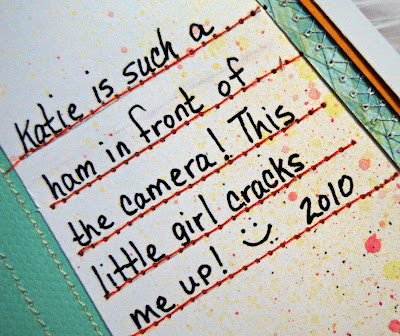 Katie is such a
ham in front of
the camera! This
little girl cracks
me up! :) 2010